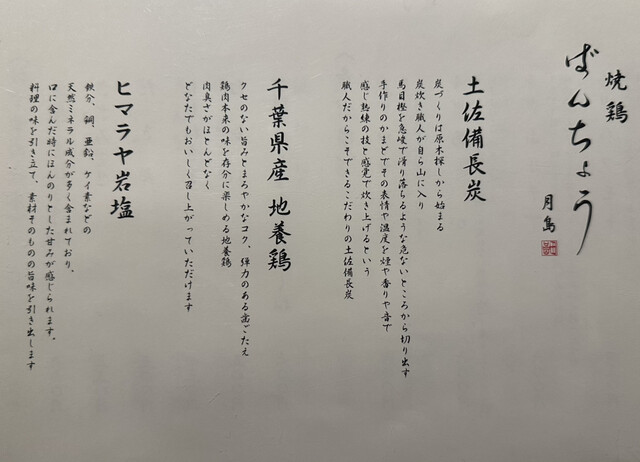 焼鶏
ばんちょう
月島
土佐備長炭
炭づくりは原木探しから始まる
炭炊き職人が自ら山に入り
馬目樫を急峻で滑り落ちるような危ないところから切り出す
手作りのかまどでその表情や温度を煙や香りや音で
感じ熟練の技と感覚で炊き上げるという
職人だからこそできるこだわりの土佐備長炭
千葉県産 地養鶏
クセのない旨みとまろやかなコク、弾力のある歯ごたえ
鶏肉本来の味を存分に楽しめる地養鶏
肉臭さがほとんどなく
どなたでもおいしく召し上がっていただけます
ヒマラヤ岩塩
鉄分、銅、亜鉛、ケイ素などの
天然ミネラル成分が多く含まれており、
口に含んだ時にほんのりとした甘みが感じられます。
料理の味を引き立て、素材そのものの旨味を引き出します